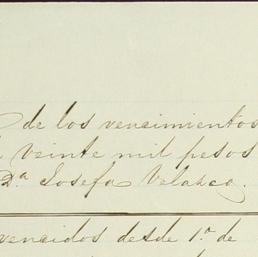 de los vencimientos
veinte mil pesos
D.ª Josefa Velazco.
vencidos desde 1.º de